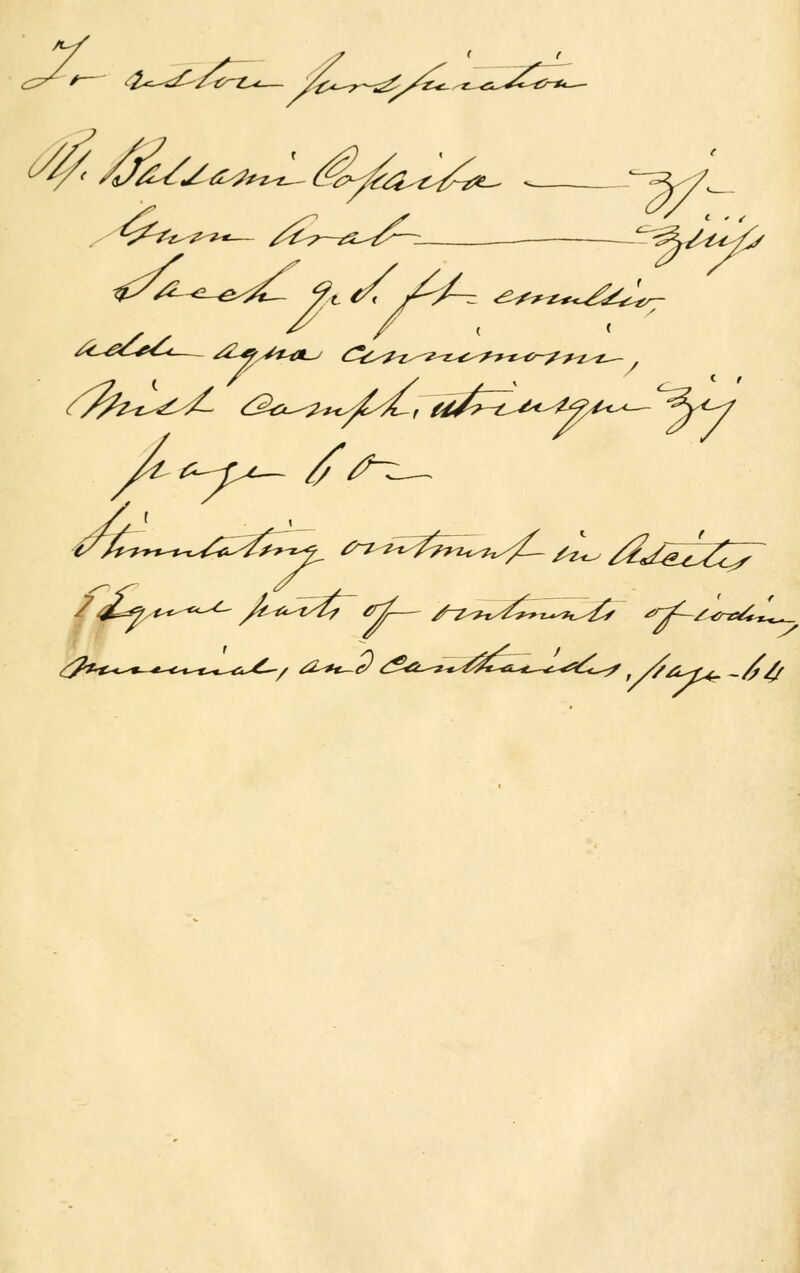 To restore perspiration
℞. Balsami Copaiba — ʒj.
Gum Arab — ʒiiiſs
Sacch q. S. ft. emulsio,
adde aqua Cinnimomi,
Mist Camph, utriusque ℥ij
page 60—
Stimulating ointment in Ascites
Equal parts of ointments of iodine,
Mercurial, and Cantharides, page - 64